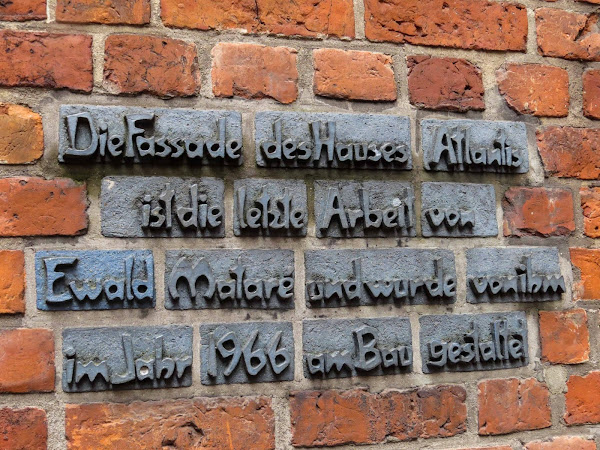 Die Fassade des Hauses Atlantis
ist die letzte Arbeit von
Ewald Mataré und wurde von ihm
im Jahr 1966 am Bau gestaltet